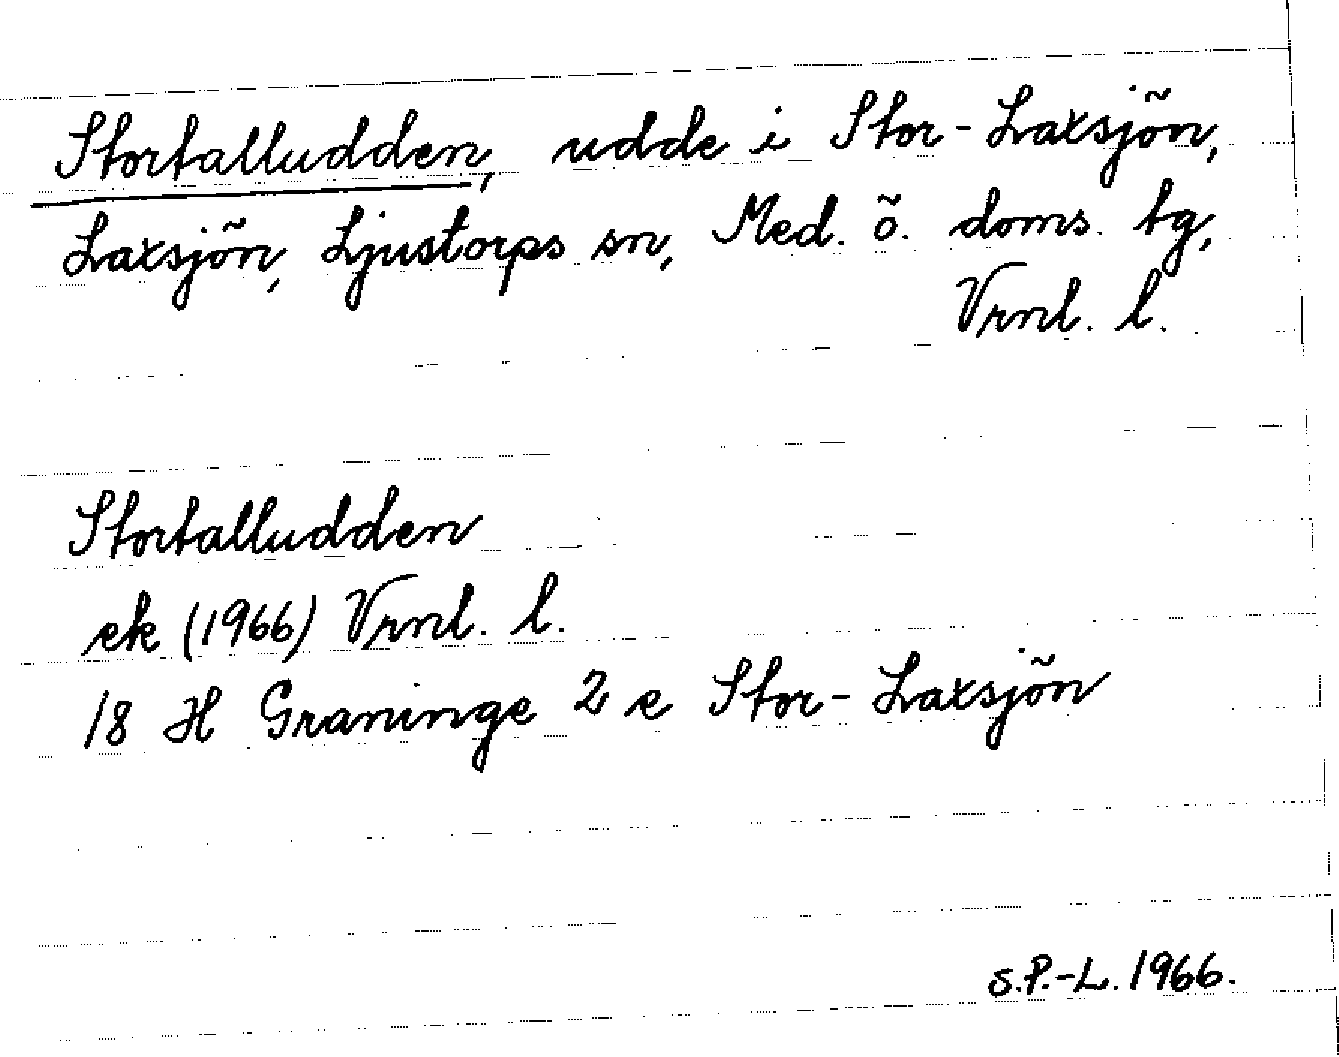 Stortalludden, udde i Stor-Laxsjön,
Laxsjön, Ljustorps sn, Med. ö. doms. tg,
Vrnl. l.
Stortalludden
ek (1966) Vrnl. l.
18 H Graninge 2 e Stor-Laxsjön
S.P.-L. 1966.